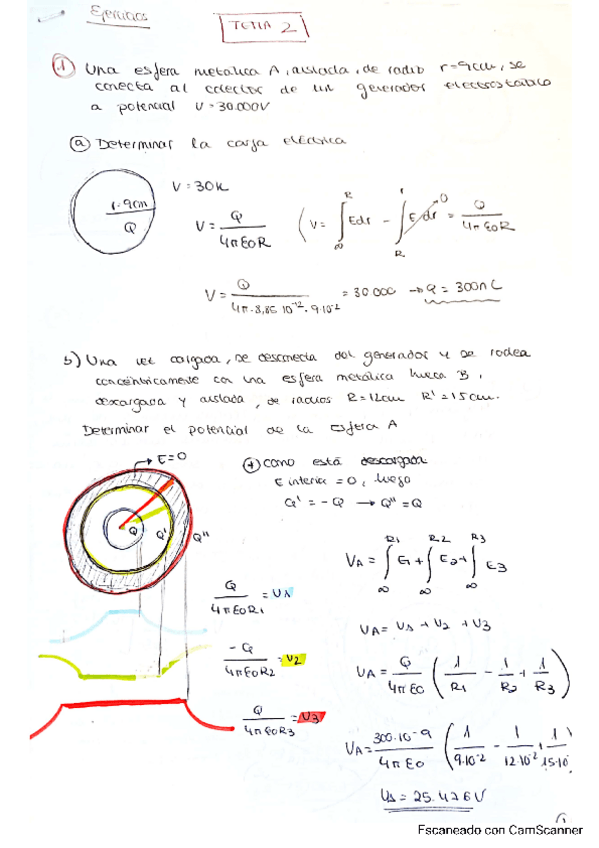 Ejercicios
TEMA 2
1 Una esfera metalica A, aislada, de radio r=9cm, se
conecta al colector de un generador electrostático
a potencial V=30.000V
a Determinar la carga eléctrica
r=9cm
Q
V=30K
V = Q / 4πε0R
( V = ∫ ∞ R Edr - ∫ R r E dr 0 = Q / 4πε0R
V = Q / 4π·8,85·10^-12·9·10^-2 = 30000 → Q = 300nC
b) Una vez cargada, se desconecta del generador y se rodea
concéntricamente con una esfera metálica hueca B,
descargada y aislada, de radios R=12cm R'=15cm.
Determinar el potencial de la esfera A
→ E=0
Q Q' Q''
+ como está descargada
E interior = 0, luego
Q' = -Q → Q'' = Q
VA = ∫ ∞ R1 E1 + ∫ ∞ R2 E2 + ∫ ∞ R3 E3
Q / 4πε0R1 = V1
VA = V1 + V2 + V3
-Q / 4πε0R2 = V2
VA = Q / 4πε0 ( 1/R1 - 1/R2 + 1/R3 )
Q / 4πε0R3 = V3
VA = 300·10^-9 / 4πε0 ( 1 / 9·10^-2 - 1 / 12·10^-2 + 1 / 15·10
VA = 25.476V
Escaneado con CamScanner